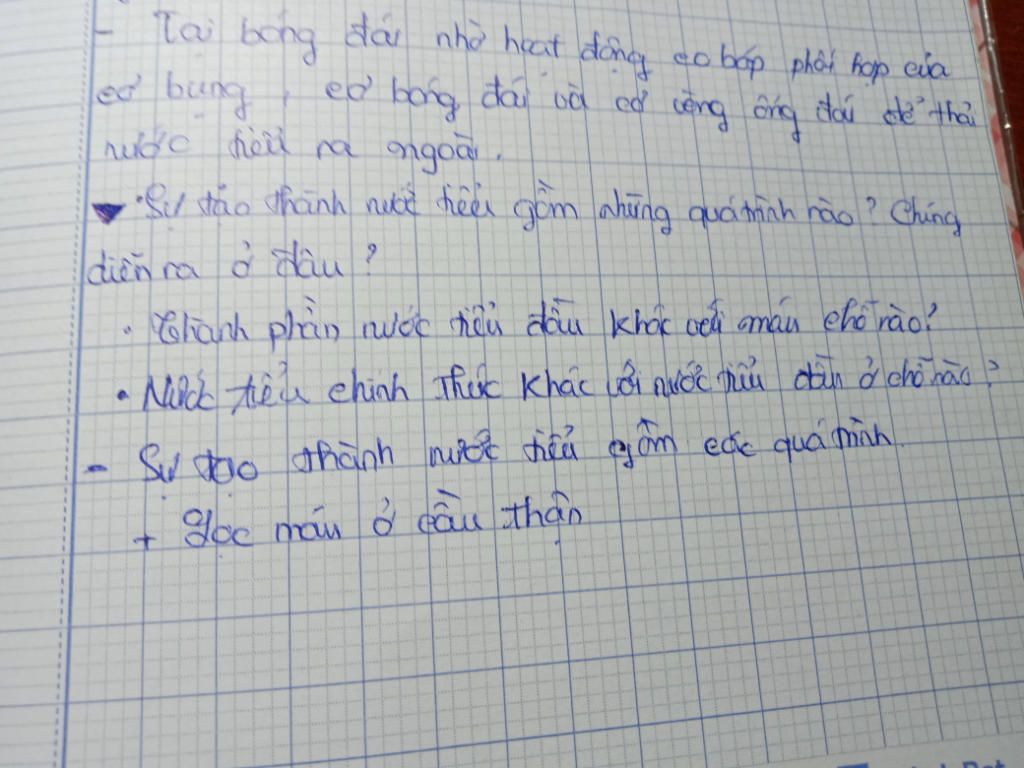 - Tại bóng đái nhờ hoạt động co bóp phối hợp của
cơ bụng, cơ bóng đái và cơ vòng ống đái để thải
nước tiểu ra ngoài.
Sự tạo thành nước tiểu gồm những quá trình nào? Chúng
diễn ra ở đâu?
• Thành phần nước tiểu đầu khác với máu chỗ nào?
• Nước tiểu chính thức khác với nước tiểu đầu ở chỗ nào?
- Sự tạo thành nước tiểu gồm các quá trình
+ Lọc máu ở cầu thận